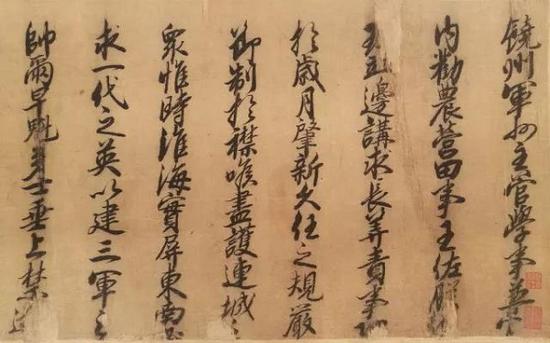 饒州軍州主管學事兼
內勸農營田事王佐朕
邊講求長筭責事
於歲月肇新久任之規嚴
御制於襟喉盡護連城之
眾惟時淮海實屏東南
求一代之英以建三軍之
帥爾早魁多士垂上禁